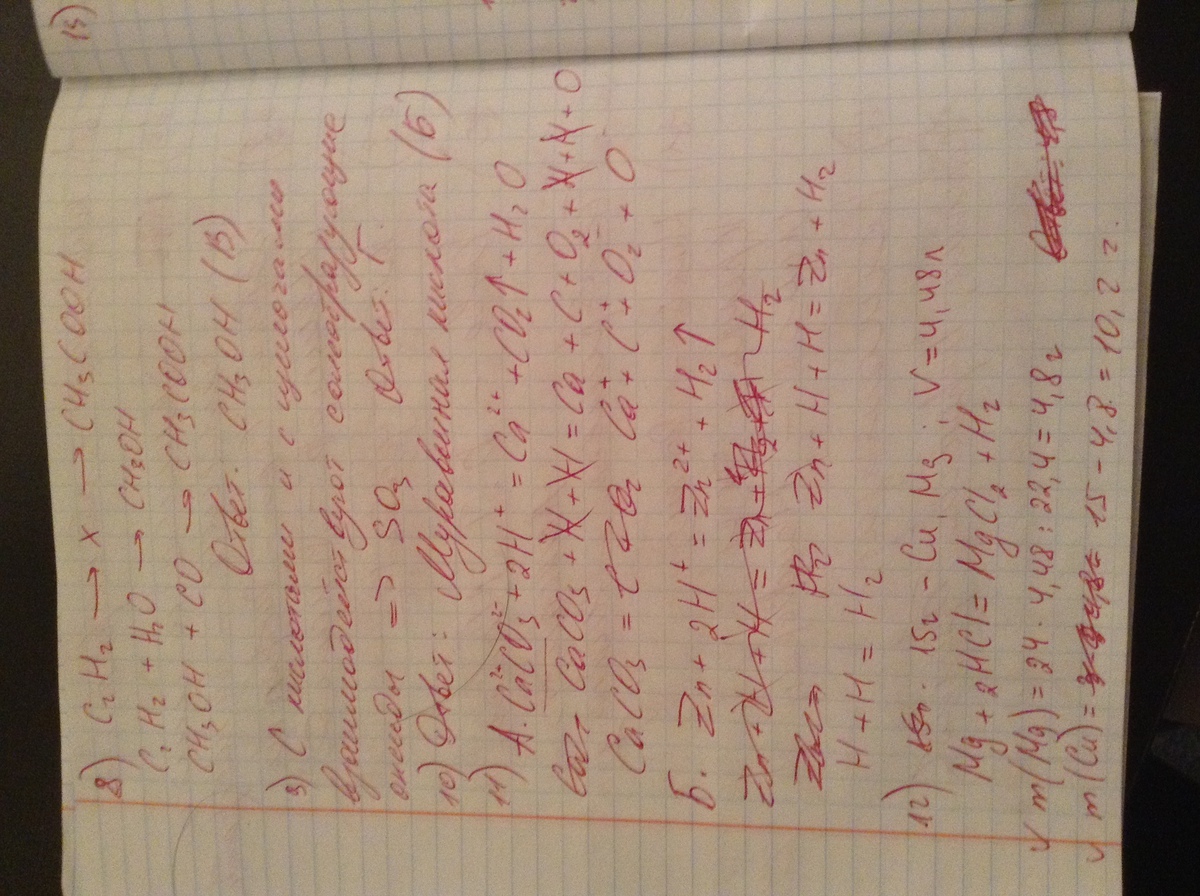 13)
8) C₂H₂ → X → CH₃COOH
C₂H₂ + H₂O → CH₃OH
CH₃OH + CO → CH₃COOH
Ответ: CH₃OH (В)
9) С кислотами и с щелочами
взаимодействуют солеобразующие
оксиды => SO₃ Ответ: Г.
10) Ответ: Муравьиная кислота (Б)
11) А. CaCO₃²⁻ + 2H⁺ = Ca²⁺ + CO₂↑ + H₂O
CaCO₃ + H + H = Ca + C + O₂ + H + H + O
CaCO₃ = Ca + C + O₂ + O
Б. Zn + 2H⁺ = Zn²⁺ + H₂↑
Zn + H + H = Zn + H₂
H₂ Zn + H + H = Zn + H₂
H + H = H₂
12) 15г - Cu, Mg. V = 4,48л
Mg + 2HCl = MgCl₂ + H₂
m(Mg) = 24 · 4,48 : 22,4 = 4,8г
m(Cu) = 15 - 4,8 = 10,2 г.